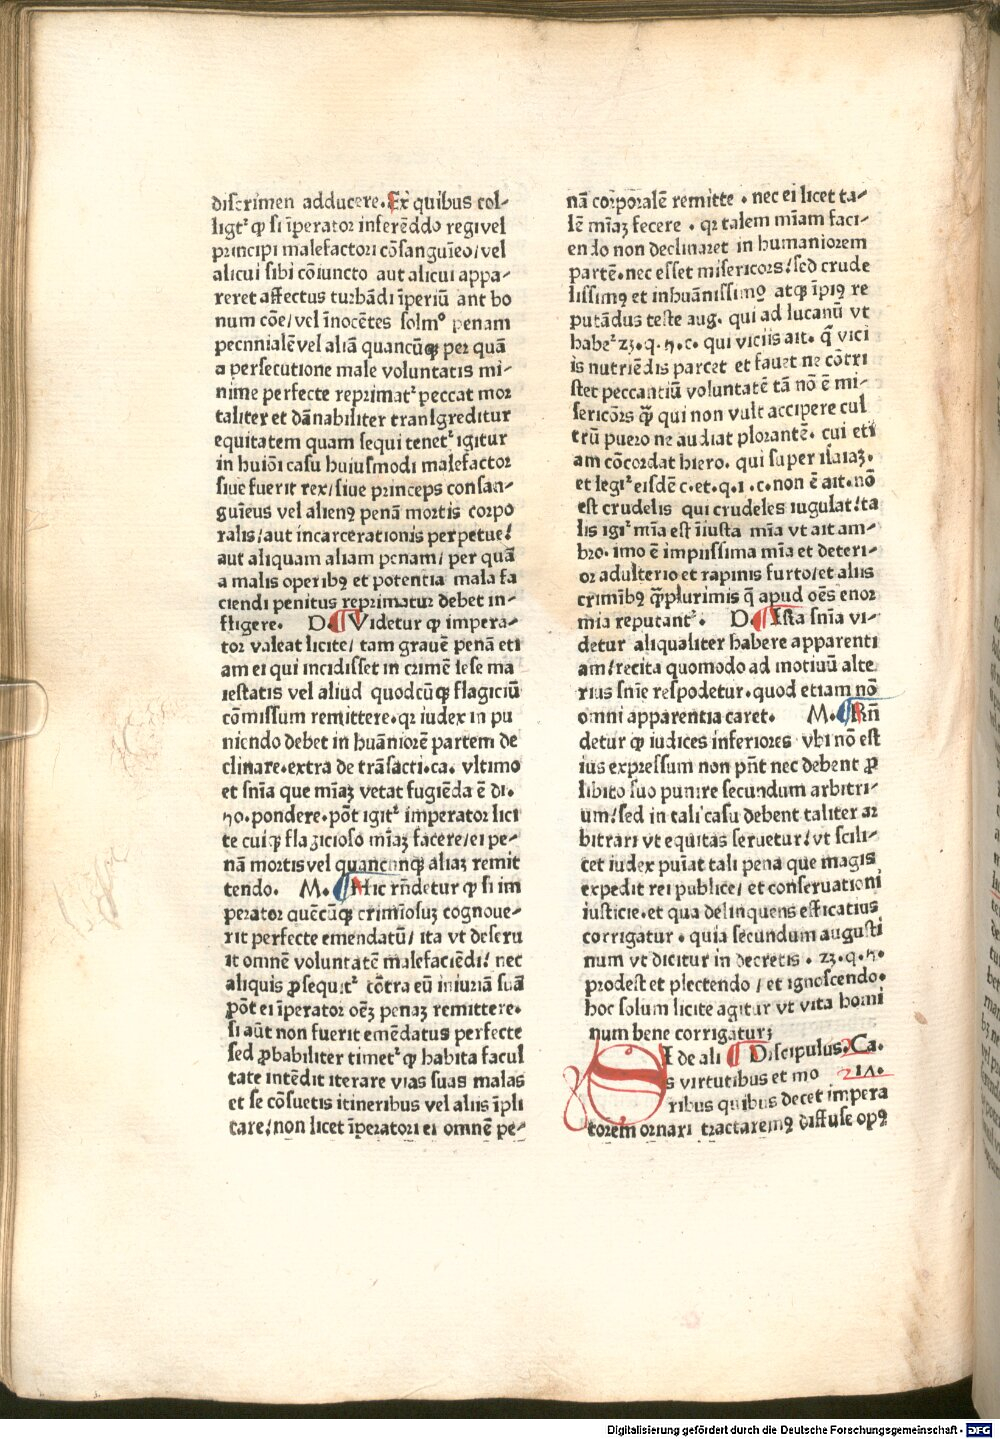 discrimen adducere. Ex quibus col-
ligt᷑ ꝙ si īperator inferēdo regi vel
principi malefactori cōsanguīeo/vel
alicui sibi cōiuncto aut alicui appa-
reret affectus turbādi īperiū aut bo
num cōe/vel īnocētes solmᵒ penam
pecunialē vel aliā quancūqꝫ per quā
a persecutione male voluntatis mi-
nime perfecte reprimat᷑ peccat mor
taliter et dānabiliter transgreditur
equitatem quam sequi tenet᷑ igitur
in huiōi casu huiusmodi malefactor
siue fuerit rex/siue princeps consan-
guīeus vel alienꝰ penā mortis corpo
ralis/aut incarcerationis perpetue/
aut aliquam aliam penam/ per quā
a malis operibꝰ et potentia mala fa
ciendi penitus reprimatur debet in-
fligere. D. Videtur ꝙ impera-
tor valeat licite/ tam grauē penā eti
am ei qui incidisset in crimē lese ma
iestatis vel aliud quodcūqꝫ flagiciū
cōmissum remittere. qꝛ iudex in pu
niendo debet in huāniorē partem de
clinare. extra de trāsacti. ca. vltimo
et snīa que mīaꝫ vetat fugiēda ē di.
50. pondere. pōt igit᷑ imperator lici
te cuiqꝫ flagicioso mīaꝫ facere/ei pe-
nā mortis vel quancunqꝫ aliaꝫ remit
tendo. M. Hic rn̄detur ꝙ si im
perator quēcūqꝫ crimīosuꝫ cognoue-
rit perfecte emendatū/ ita vt deseru
it omnē voluntatē malefaciēdi/ nec
aliquis ꝓsequit᷑ cōtra eū iniuriā suā
pōt ei īperator oēꝫ penaꝫ remittere.
si aūt non fuerit emēdatus perfecte
sed ꝓbabiliter timet᷑ ꝙ habita facul
tate intēdit iterare vias suas malas
et se cōsuetis itineribus vel aliis īpli
care/ non licet īperatori ei omnē pe-
nā corꝑoralē remitte . nec ei licet ta-
lē mīaꝫ fecere . qꝛ talem mīam faci-
endo non declinaret in humaniorem
partē. nec esset misericors/ sed crude
lissimꝰ et inhuānissimꝰ atqꝫ īpiꝰ re
putādus teste aug. qui ad lucanū vt
habet᷑ 23. q. 5. c. qui viciis ait. q̄ vici
is nutriēdis parcet et fauet ne cōtri
stet peccantiū voluntatē tā nō ē mi-
sericōrs q̄ꝫ qui non vult accipere cul
trū puero ne audiat plorantē. cui eti
am cōcordat hiero. qui super isaiaꝫ.
et legit᷑ eisdē c. et. q. i . c. non ē ait. nō
est crudelis qui crudeles iugulat/ ta
lis igit᷑ mīa est īiusta mīa vt ait am-
bro. imo ē impiissima mīa et deteri-
or adulterio et rapinis furto/et aliis
crimībꝰ q̄ꝫplurimis q̄ apud oēs enor
mia reputant᷑. D. Ista snīa vi-
detur aliqualiter habere apparenti
am/ recita quomodo ad motiuū alte
rius snīe respōdetur. quod etiam nō
omni apparentia caret. M. Rn̄
detur ꝙ iudices inferiores vbi nō est
ius expressum non pn̄t nec debent ꝓ
libito suo punire secundum arbitri-
um/ sed in tali casu debent taliter ar
bitrari vt equitas seruetur/ vt scili-
cet iudex puīat tali pena que magis
expedit rei publice/ et conseruationi
iusticie. et qua delinquens efficatius
corrigatur . quia secundum augusti
num vt dicitur in decretis . 23. q. 5.
prodest et plectendo / et ignoscendo.
hoc solum licite agitur vt vita homi
num bene corrigatur;
SI de ali Discipulus. Ca.
s virtutibus et mo 17.
ribus quibus decet impera
torem ornari tractaremꝰ diffuse opꝰ
Digitalisierung gefördert durch die Deutsche Forschungsgemeinschaft - DFG